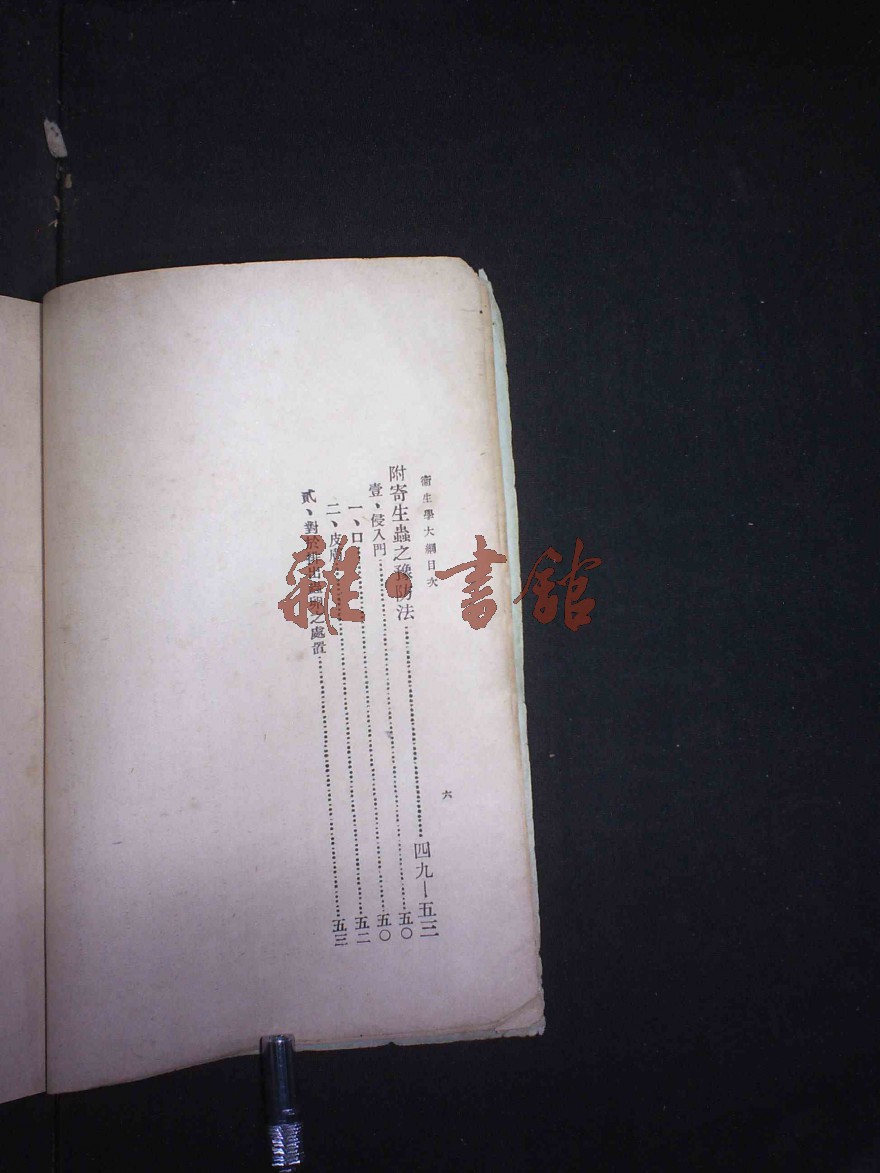 衞生學大綱目次
六
附寄生蟲之豫防法……四九—五三
壹、侵入門……五〇
一、口……五〇
二、皮膚……五二
貳、對於排出蟲卵之處置……五三
雜·書館